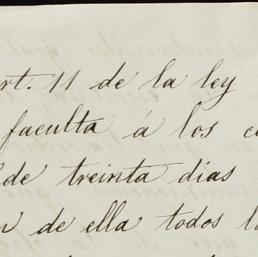 rt. 11 de la ley
faculta á los c
de treinta dias
n de ella todos l